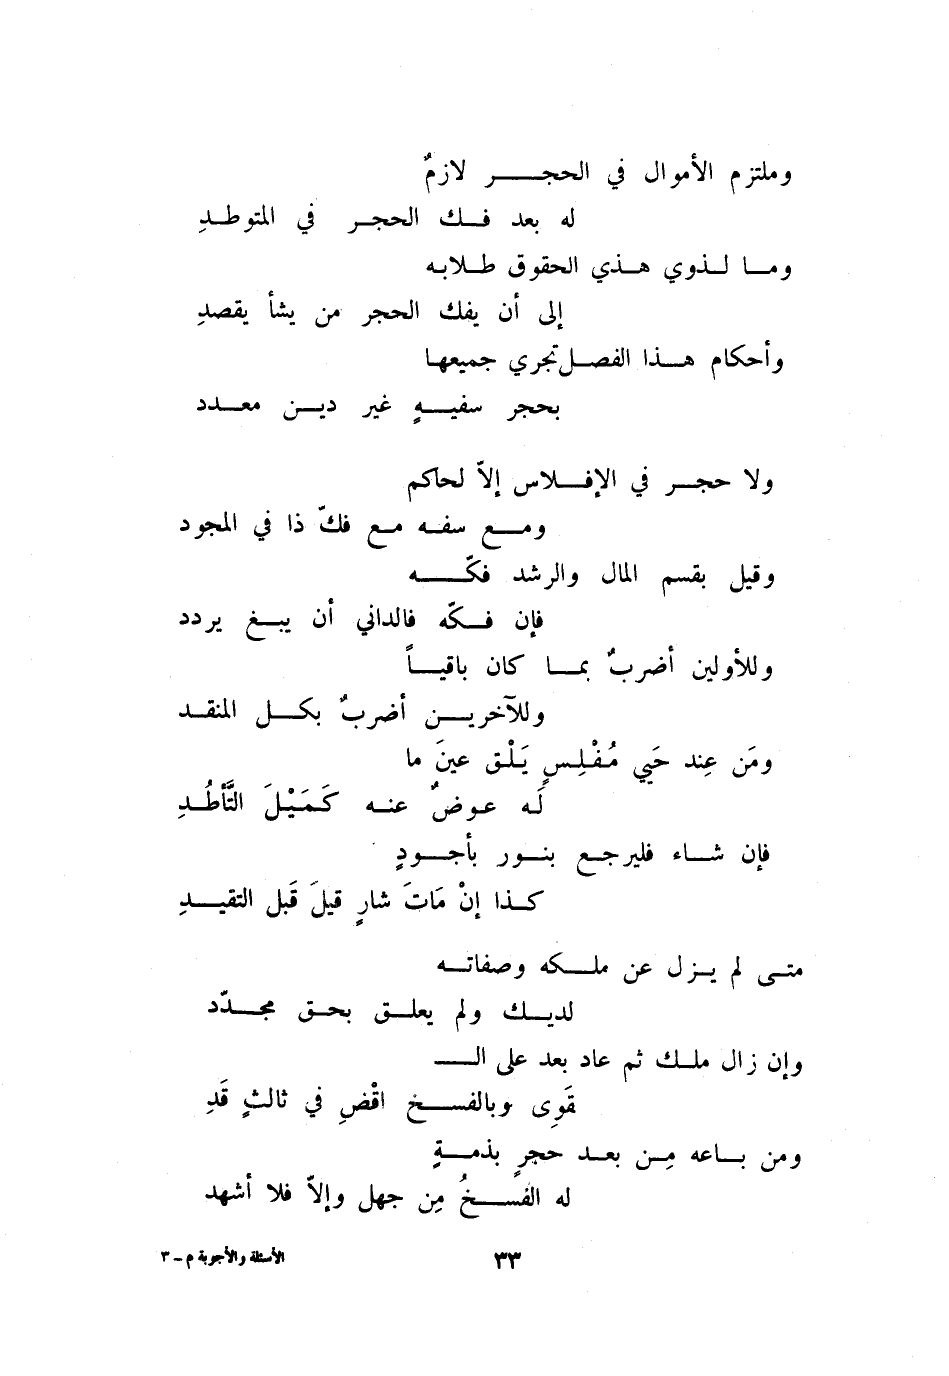 وملتزم الأموال في الحجر لازمٌ
له بعد فك الحجر في المتوطدِ
وما لذوي هذي الحقوق طلابه
إلى أن يفك الحجر من يشأ يقصدِ
وأحكام هذا الفصل تجري جميعها
بحجر سفيهٍ غير دين معدد
ولا حجر في الإفلاس إلاّ لحاكم
ومع سفه مع فكّ ذا في المجود
وقيل بقسم المال والرشد فكّه
فإن فكّه فالداني أن يبغ يردد
وللأولين أضربٌ بما كان باقياً
وللآخرين أضربٌ بكل المنقد
ومَن عِند حَيي مُفْلِسٍ يَلْق عينَ ما
لَه عوضٌ عنه كَمَيْلَ التَّأطُدِ
فإن شاء فليرجع بنور بأجودٍ
كذا إنْ مَاتَ شارٍ قيلَ قَبل التقيدِ
متى لم يزل عن ملكه وصفاته
لديك ولم يعلق بحق مجدّد
وإن زال ملك ثم عاد بعد على الـ
قَوِى وبالفسخ اقْضِ في ثالثٍ قَدِ
ومن باعه مِن بعد حجرٍ بذمةٍ
له الفسخُ مِن جهل وإلاّ فلا أشهد
٣٣
الأسئلة والأجوبة م - ٣